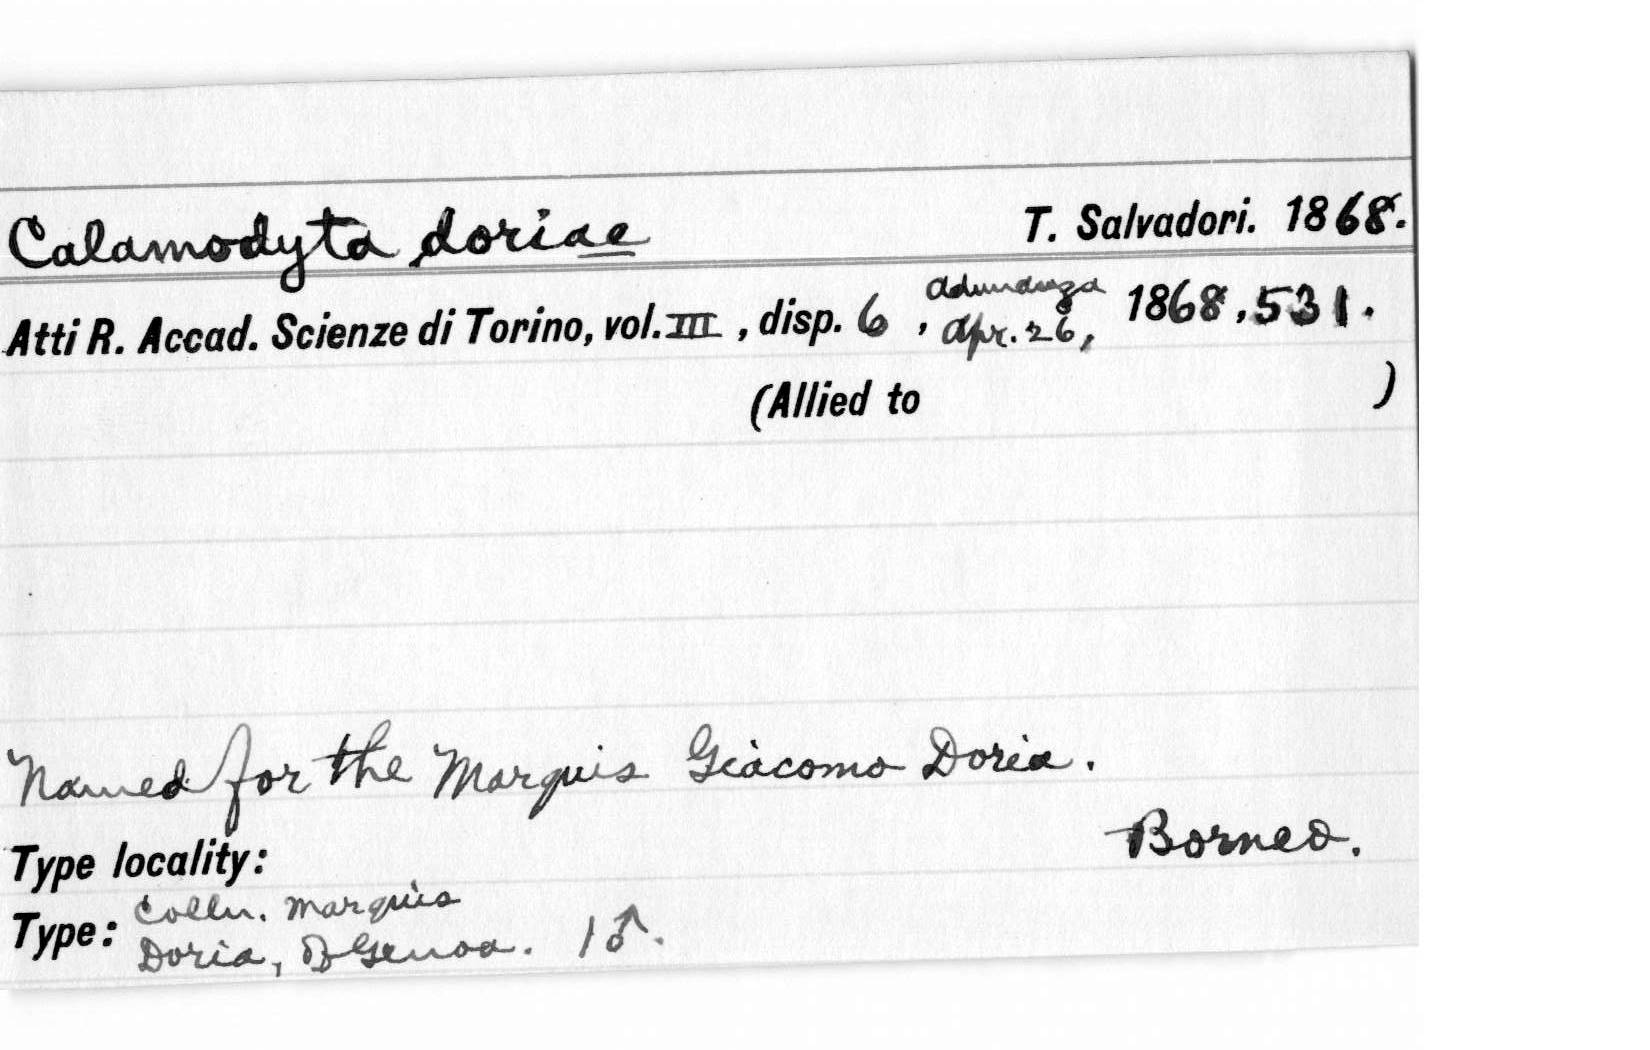 Calamodyta doriae T. Salvadori. 1868.
Atti R. Accad. Scienze di Torino, vol. III, disp. 6, adunanza Apr. 26, 1868, 531.
(Allied to )
Named for the Marquis Giacomo Doria.
Borneo.
Type locality:
Type: Colln. Marquis
Doria, of Genoa. 1♂.